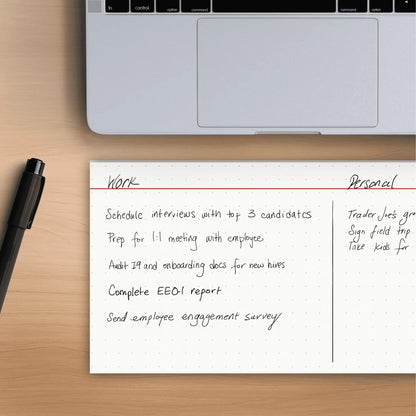 fn control option command command option
Work
Schedule interviews with top 3 candidates
Prep for 1:1 meeting with employee
Audit I9 and onboarding docs for new hires
Complete EEO-1 report
Send employee engagement survey
Personal
Trader Joe's gro
Sign field trip
Take kids for